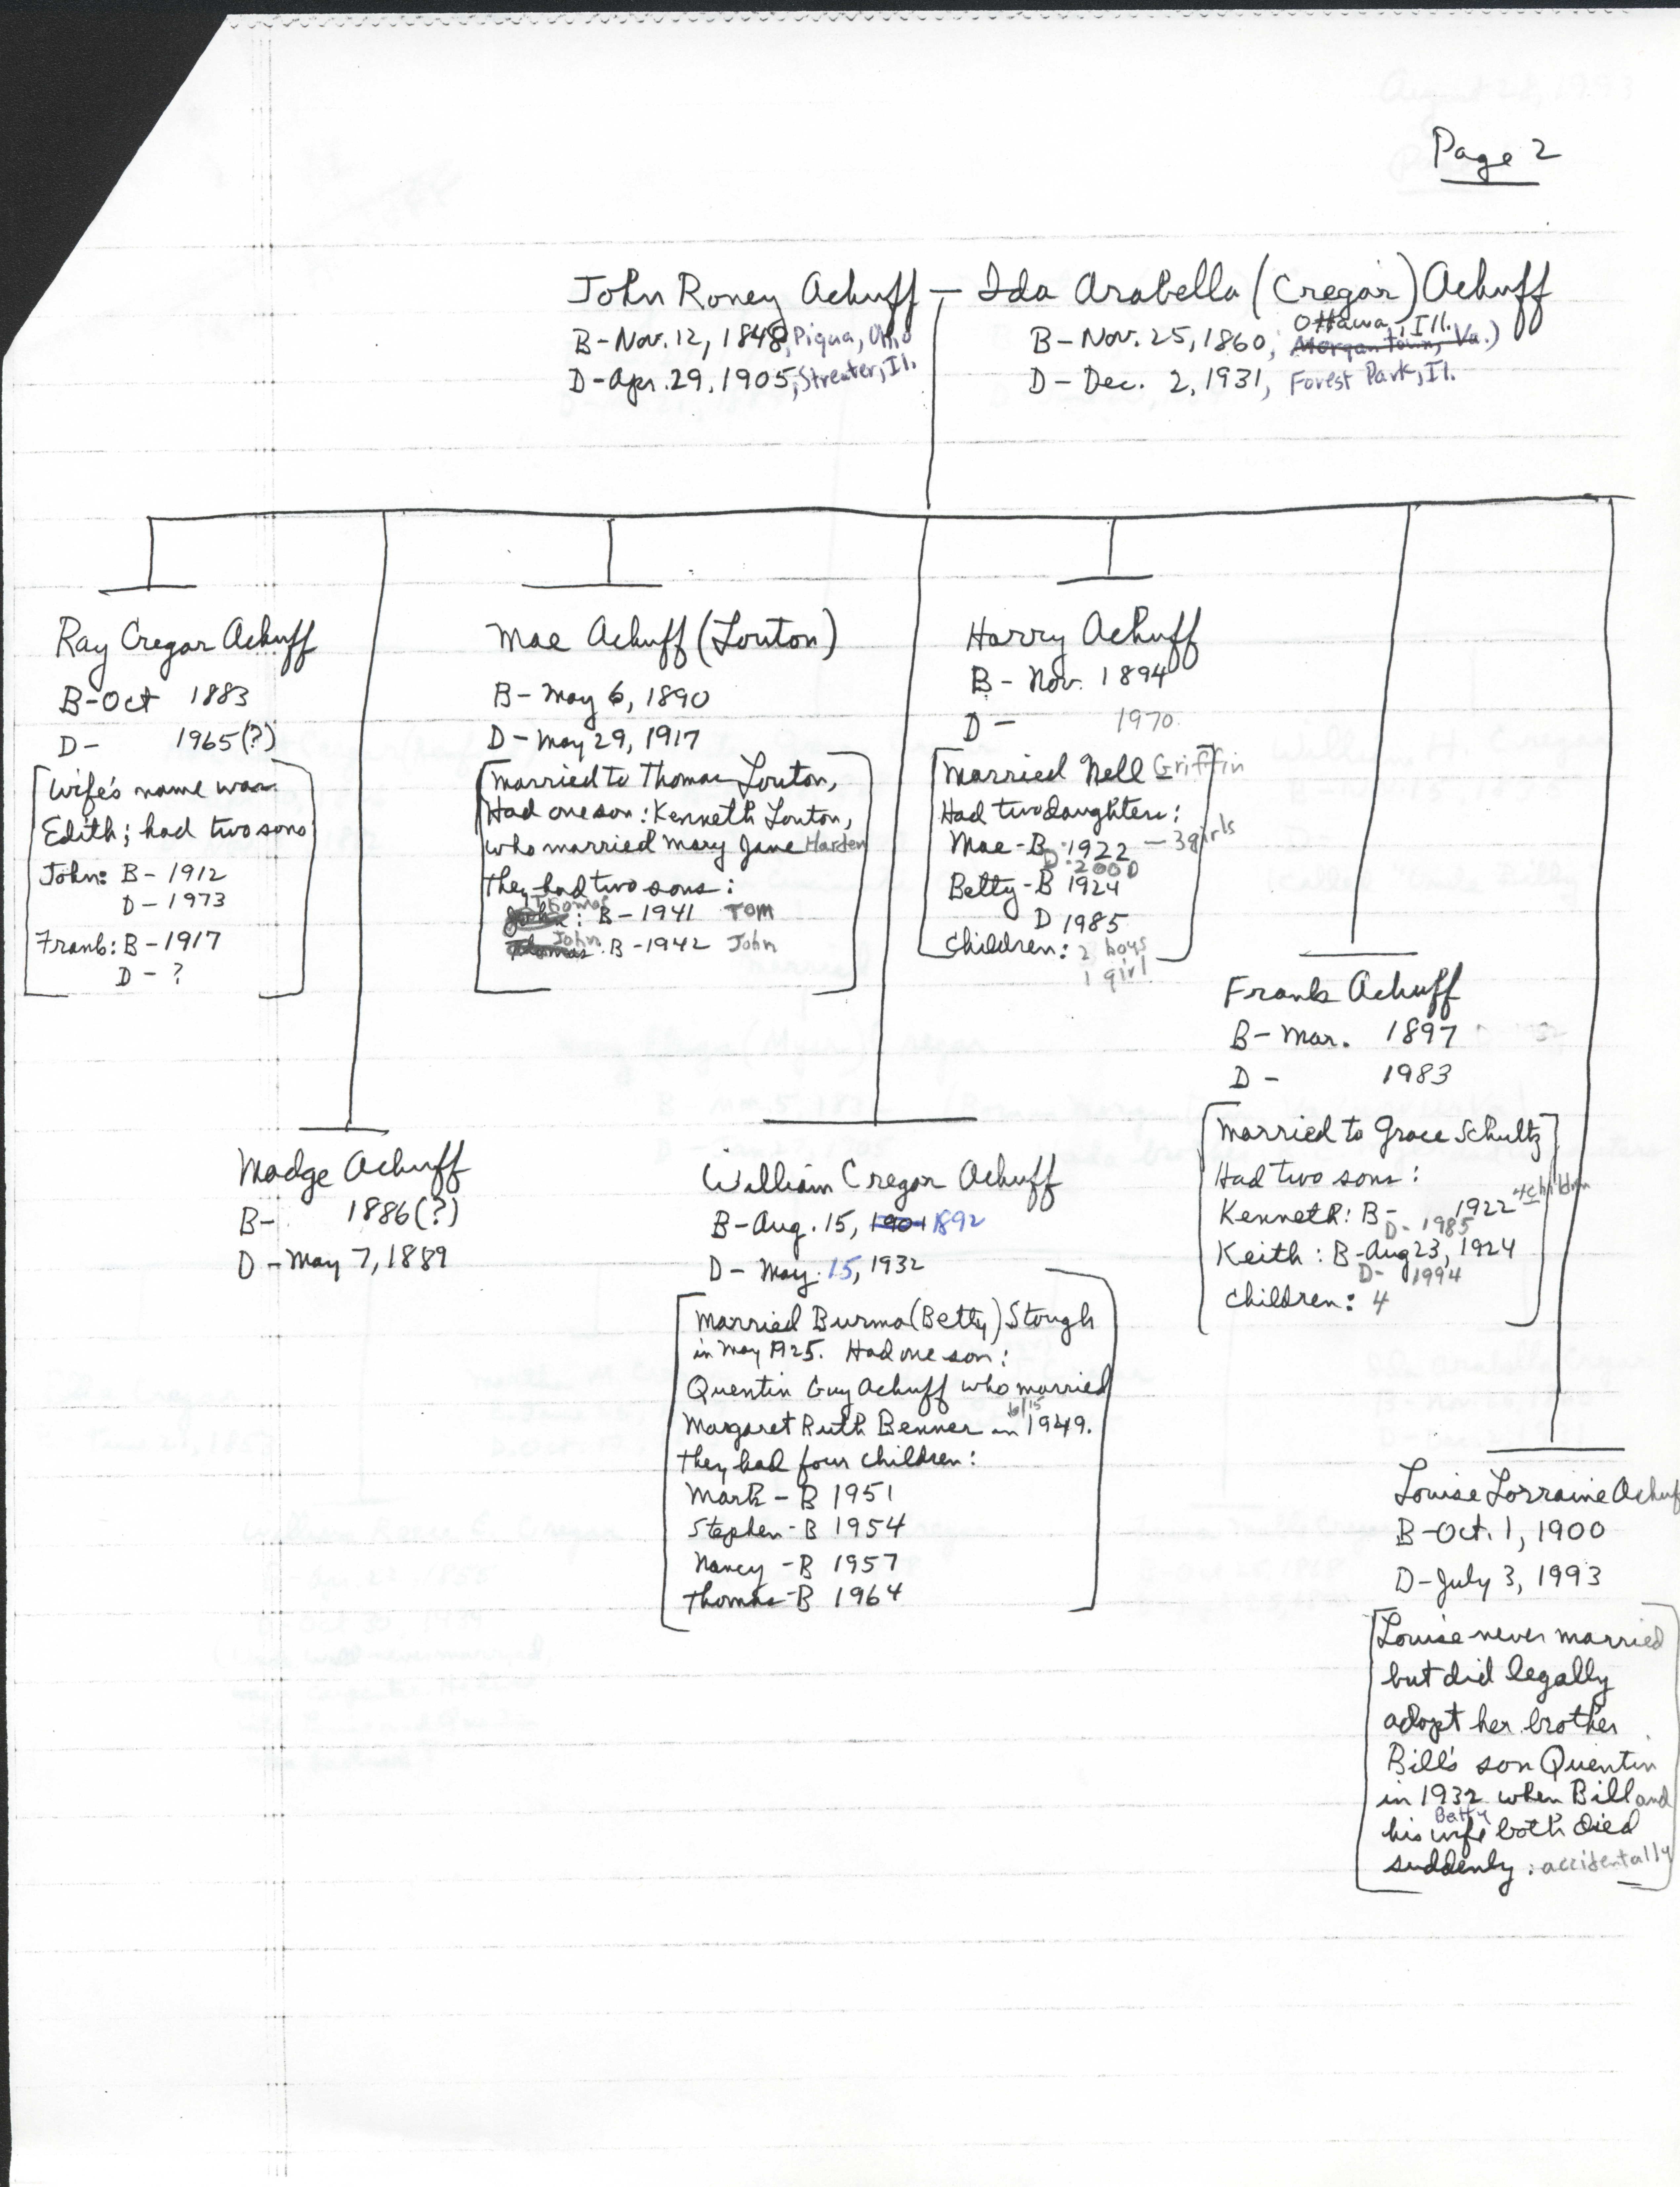 Page 2
John Roney Achuff — Ida Arabella (Cregar) Achuff
B-Nov. 12, 1848, Piqua, Ohio
D-Apr. 29, 1905, Streator, Il.
Ottawa, Ill.
B-Nov. 25, 1860, Morgantown, Va.)
D-Dec. 2, 1931, Forest Park, Il.
Ray Cregar Achuff
B-Oct 1883
D- 1965(?)
Wife's name was
Edith; had two sons
John: B-1912
D-1973
Frank: B-1917
D-?
Madge Achuff
B- 1886(?)
D-May 7, 1889
Mae Achuff (Louton)
B-May 6, 1890
D-May 29, 1917
Married to Thomas Louton,
Had one son: Kenneth Louton,
who married Mary Jane Harden
They had two sons:
Thomas
John: B-1941 Tom
John
Thomas: B-1942 John
William Cregar Achuff
B-Aug. 15, 1901 1892
D-May 15, 1932
Married Burma (Betty) Stough
in May 1925. Had one son:
Quentin Guy Achuff who married
6/15
Margaret Ruth Benner in 1949.
They had four children:
Mark-B 1951
Stephen-B 1954
Nancy-B 1957
Thomas-B 1964
Harry Achuff
B-Nov. 1894
D- 1970
Married Nell Griffin
Had two daughters:
Mae-B 1922 — 3 girls
D: 2000
Betty-B 1924
D 1985
Children: 2 boys
1 girl
Frank Achuff
B-Mar. 1897
D- 1983
Married to Grace Schultz
Had two sons:
Kenneth: B- 1922 4 children
D-1985
Keith: B-Aug 23, 1924
D- 1994
Children: 4
Louise Lorraine Achuff
B-Oct. 1, 1900
D-July 3, 1993
Louise never married
but did legally
adopt her brother
Bill's son Quentin
in 1932 when Bill and
Betty
his wife both died
suddenly: accidentally